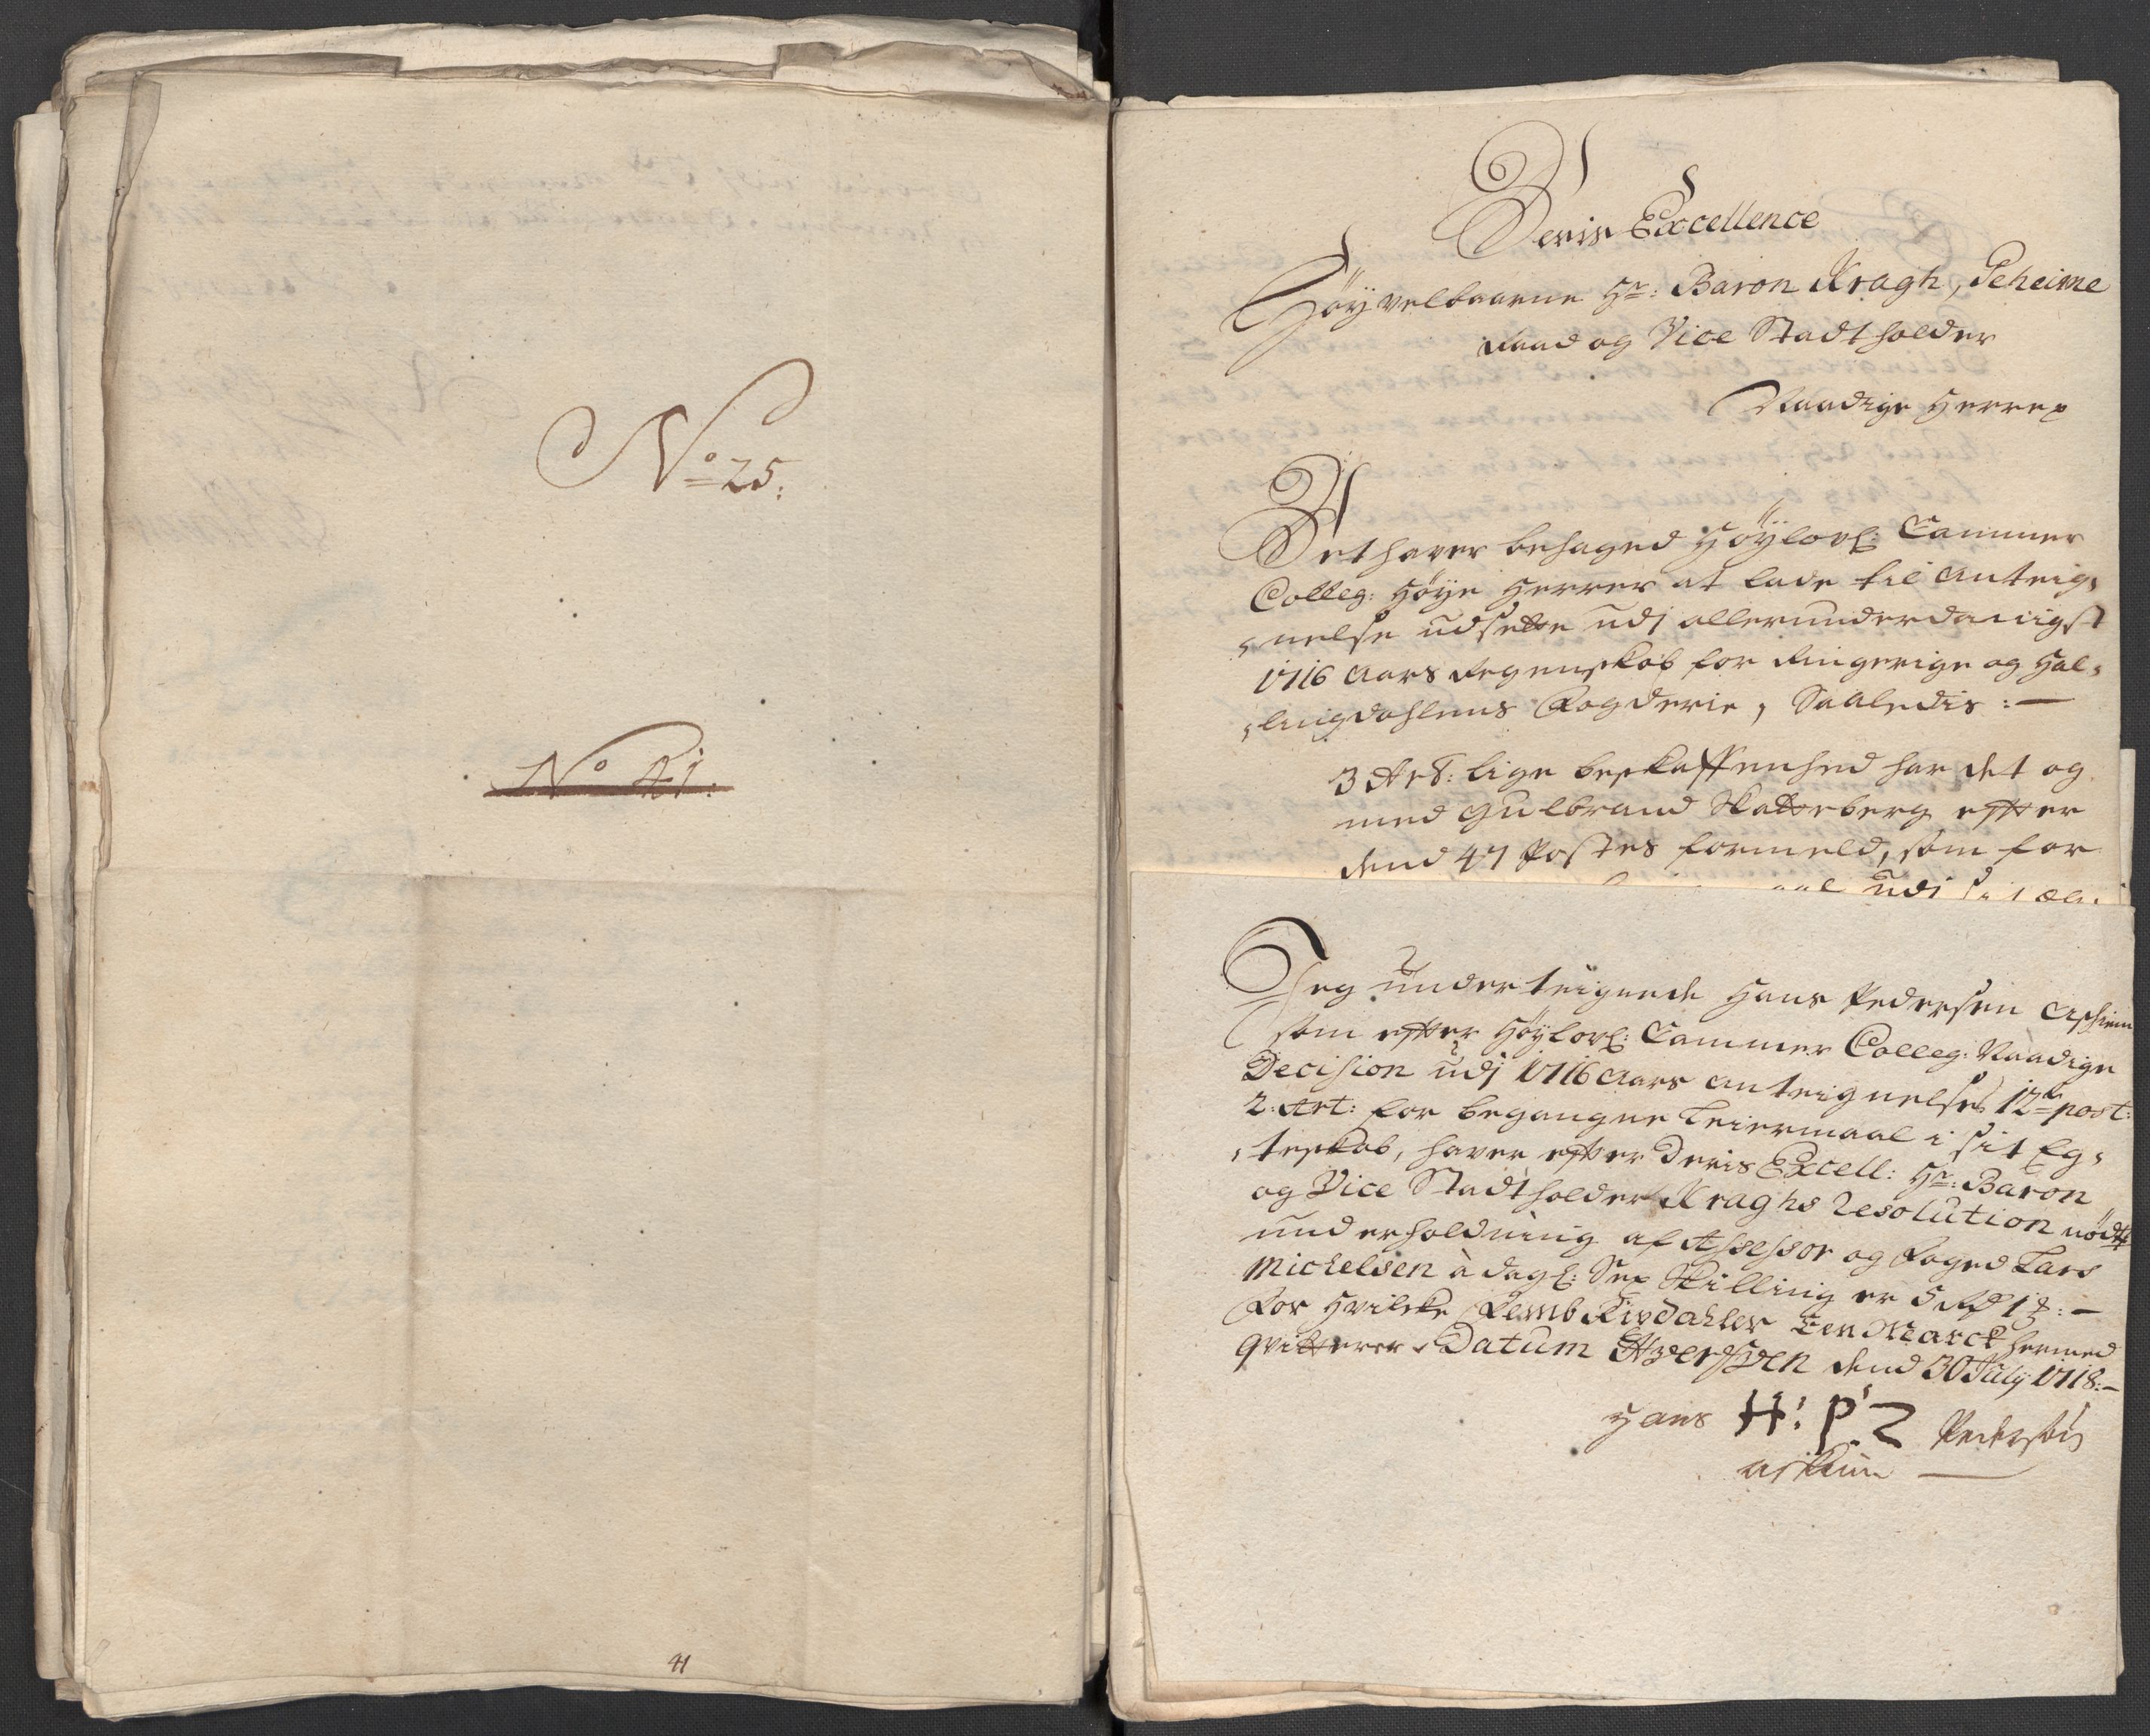 No 25:
No 41:
41
Deris Excellence
Höyvelbaarne Hr: Baron Kragh, Geheime
Raad og Vice Stadtholder
Naadige Herre
Det haver behaged Höylovl: Cammer
Colleg: Höye Herrer at lade til Anteig,
,nelse udsette udj allerunderdanigst
1716 Aars Regenskob for Ringerige og Hal,
,lingdahlens Fogderie, Saaledis:—
3 Art: lige beskaffenhed har det og
med Gulbrand Skatteberg efter
dend 47 Postes formeld, som for
udi
Jeg underteignede Hans Pedersen Aschim
som efter Höylovl: Cammer Colleg: Naadige
Decision udj 1716 Aars Anteignelses 12te post:
2: Art: for begangne Leiermaal i sit Eg,
,teskab, haver efter Deris Excell: Hr: Baron
og Vice Stadtholder Kraghs Resolution nödtf
underholdning af Assessor og Foged Lars
Michelsen à dagl: Sex Skilling er 5 Rd 1 ß:—
For Hvilcke Femb Rixdahler Een Marck hermed
qvitterer. Datum dend 30 Julij 1718:—
Hans H: P: Z Pedersøn
askim